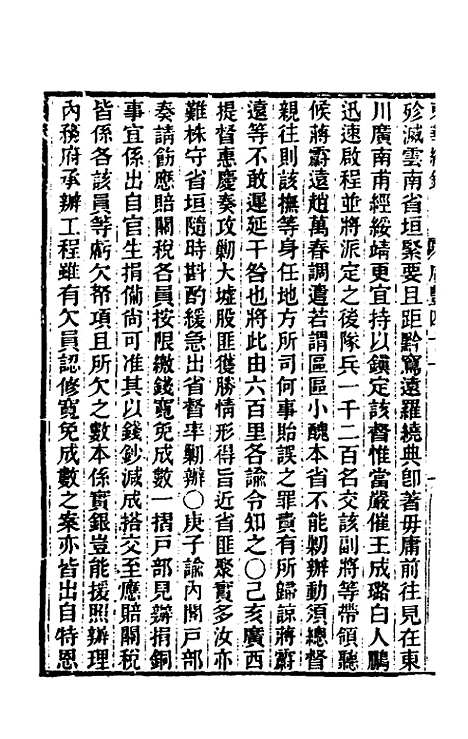 殄滅雲南省垣緊要且距黔窵遠羅繞典卽著毋庸前往見在東
川廣南甫經綏靖更宜持以鎮定該督惟當嚴催王成璐白人鵬
迅速啟程並將派定之後隊兵一千二百名交該副將等帶領聽
候蔣霨遠趙萬春調遣若謂區區小醜本省不能勦辦動須總督
親往則該撫等身任地方所司何事貽誤之罪責有所歸諒蔣霨
遠等不敢遲延干咎也將此由六百里各諭令知之〇己亥廣西
提督惠慶奏攻勦大墟股匪獲勝情形得旨近省匪聚實多汝亦
難株守省垣隨時斟酌緩急出省督率勦辦〇庚子諭內閣戶部
奏請飭應賠關稅各員按限繳錢寬免成數一摺戶部見辦捐銅
事宜係出自官生捐備尚可准其以錢鈔減成搭交至應賠關稅
皆係各該員等虧欠帑項且所欠之數本係實銀豈能援照辦理
內務府承辦工程雖有欠員認修寬免成數之案亦皆出自特恩